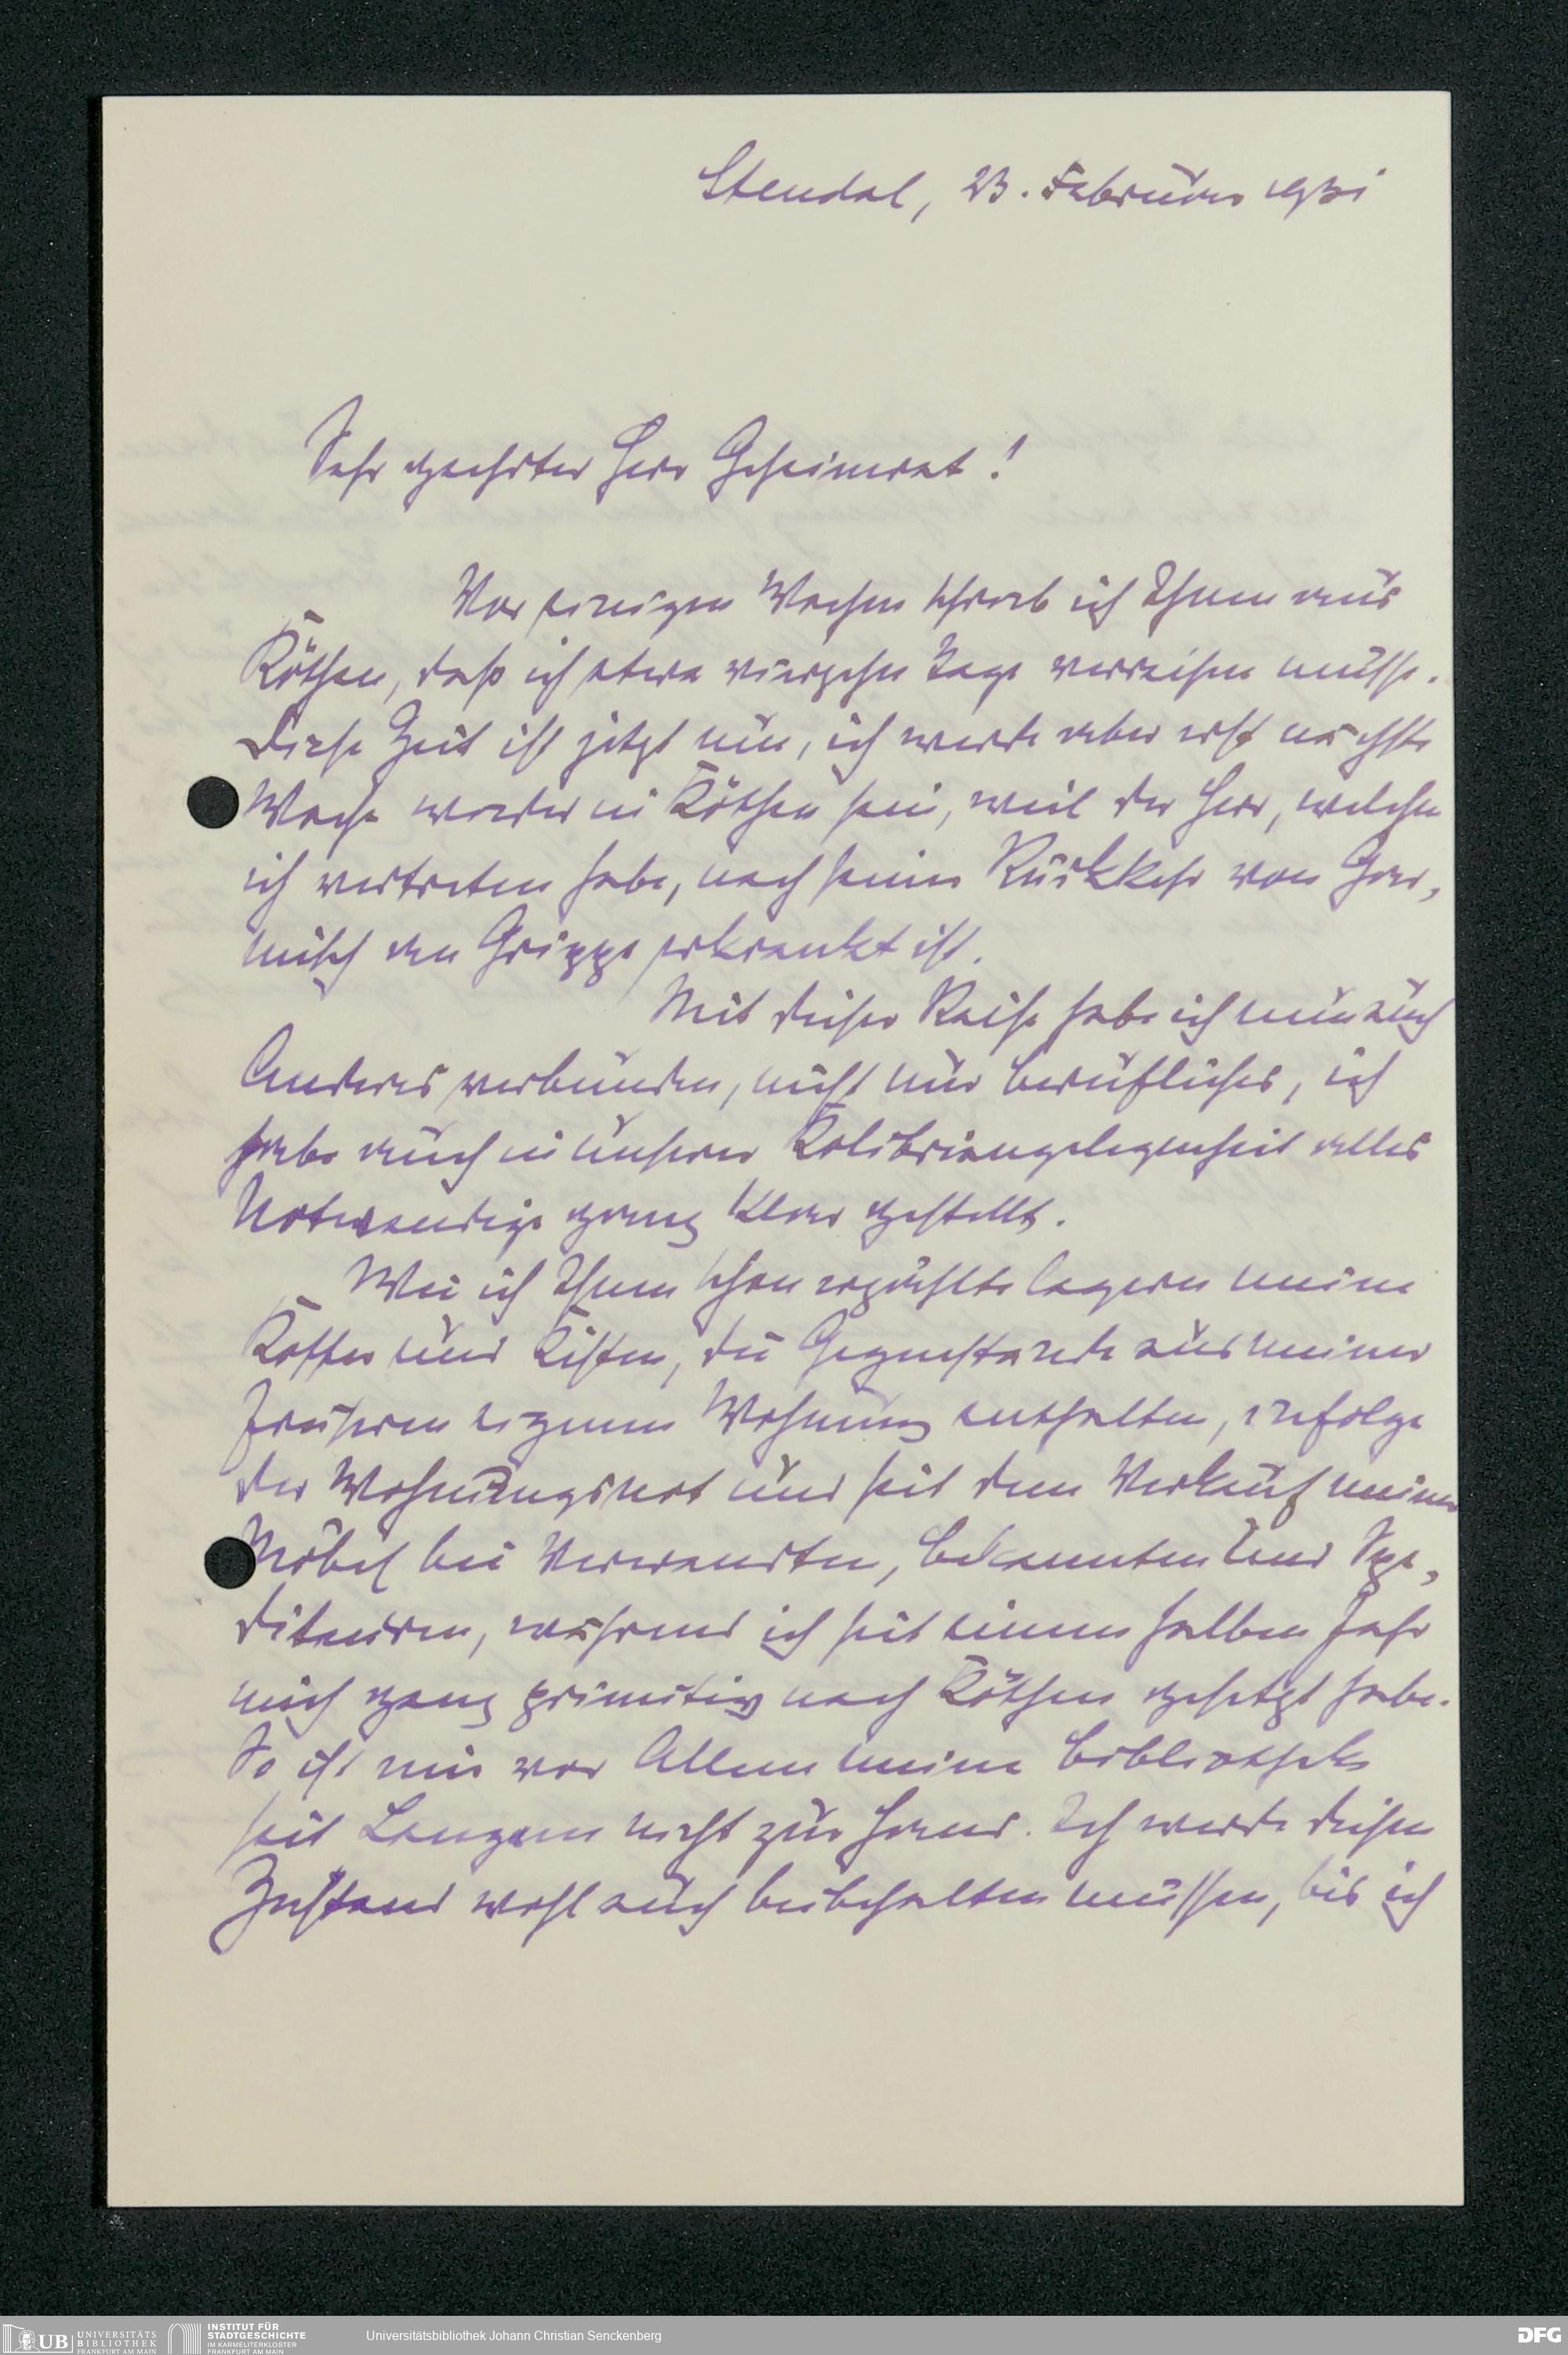 Stendal, 23. Februar 1931
Sehr geehrter Herr Geheimrat!
Vor einigen Wochen schrieb ich Ihnen aus
Köthen, daß ich etwa vierzehn Tage verreisen müsse.
Diese Zeit ist jetzt um, ich werde aber erst nächste
Woche wieder in Köthen sein, weil der Herr, welchen
ich vertreten habe, nach seiner Rückkehr von Gar-
misch an Grippe erkrankt ist.
Mit dieser Reise habe ich nun auch
Anderes verbunden, nicht nur berufliches, ich
habe auch in unserer Kolibriangelegenheit alles
Notwendige ganz klar gestellt.
Wie ich Ihnen schon erzählte lagern meine
Koffer und Kisten, die Gegenstände aus meiner
früheren eigenen Wohnung enthalten, infolge
der Wohnungsnot und seit dem Verkauf meiner
Möbel bei Verwandten, Bekannten und Spe-
diteuren, während ich seit einem halben Jahr
mich ganz primitiv nach Köthen gesetzt habe.
So ist mir vor Allem meine Bibliothek
seit Langem nicht zur Hand. Ich werde diesen
Zustand wohl auch beibehalten müssen, bis ich
UB UNIVERSITÄTS
BIBLIOTHEK
FRANKFURT AM MAIN
INSTITUT FÜR
STADTGESCHICHTE
IM KARMELITERKLOSTER
FRANKFURT AM MAIN
Universitätsbibliothek Johann Christian Senckenberg
DFG